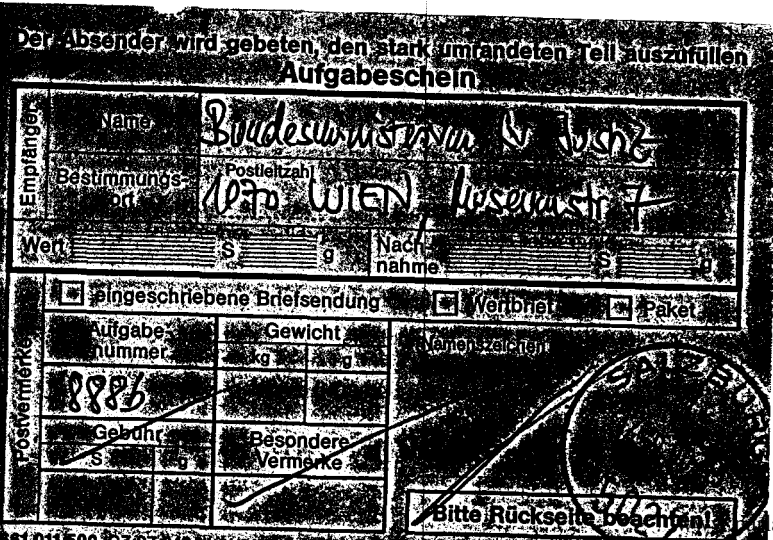 Der Absender wird gebeten, den stark umrandeten Teil auszufüllen
Aufgabeschein
Empfänger
Name
Bundesministerium für Justiz
Bestimmungs-
ort
Postleitzahl
1070 WIEN, Museumstr 7
Wert S g
Nach-
nahme S g
Postvermerke
* eingeschriebene Briefsendung * Wertbrief * Paket
Aufgabe-
nummer
8886
Gewicht
kg g
Gebühr
S g
Besondere
Vermerke
Namenszeichen
SALZBURG
Bitte Rückseite beachten!